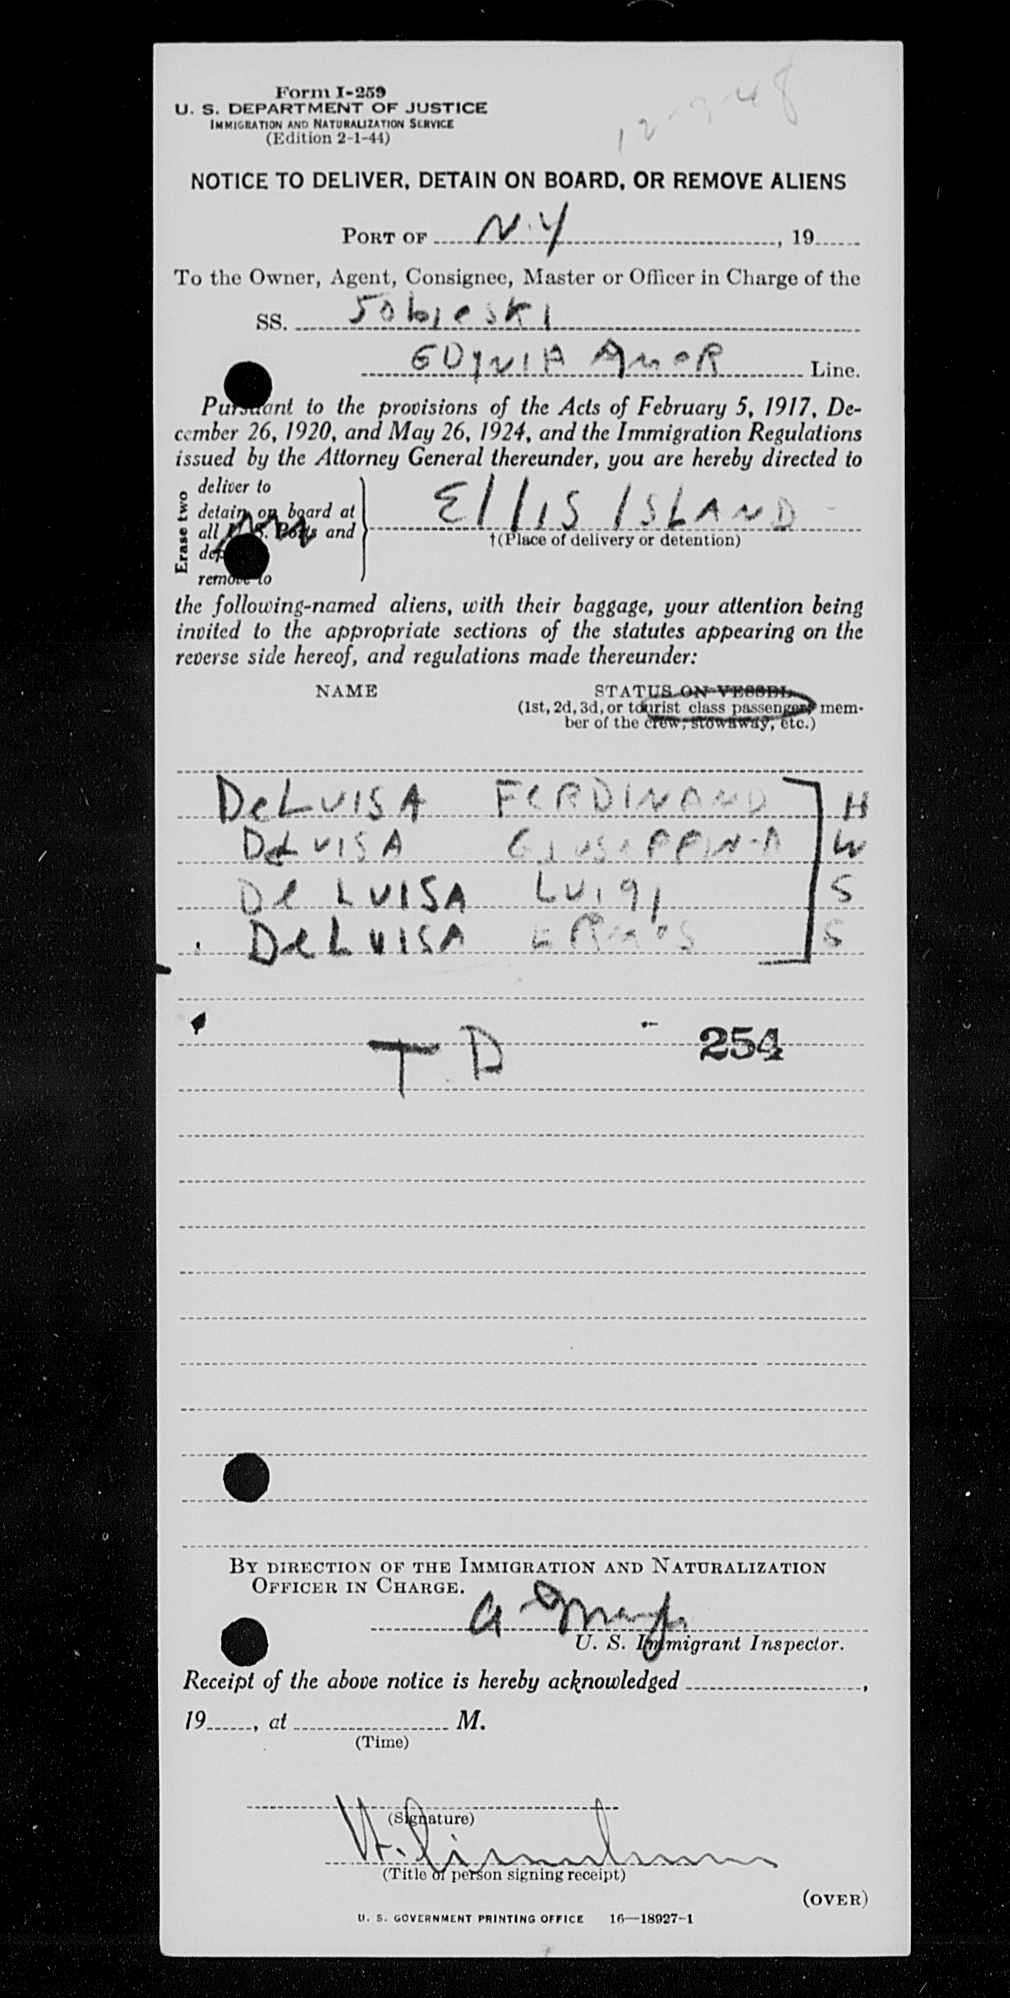 Form I-259
U. S. DEPARTMENT OF JUSTICE
IMMIGRATION AND NATURALIZATION SERVICE
(Edition 2-1-44)
12-9-48
NOTICE TO DELIVER, DETAIN ON BOARD, OR REMOVE ALIENS
PORT OF N.Y , 19
To the Owner, Agent, Consignee, Master or Officer in Charge of the
SS. Sobieski
GDYNIA AmeR Line.
Pursuant to the provisions of the Acts of February 5, 1917, De-
cember 26, 1920, and May 26, 1924, and the Immigration Regulations
issued by the Attorney General thereunder, you are hereby directed to
Erase two
deliver to
detain on board at
all U. S. Ports and
remove to
Ellis ISLAND
†(Place of delivery or detention)
the following-named aliens, with their baggage, your attention being
invited to the appropriate sections of the statutes appearing on the
reverse side hereof, and regulations made thereunder:
NAME STATUS ON VESSEL
(1st, 2d, 3d, or tourist class passenger, mem-
ber of the crew, stowaway, etc.)
DeLUISA FERDINAND H
DeLUISA GIUSEPPINA W
De LUISA LUIgi S
DeLUISA S
T D 254
BY DIRECTION OF THE IMMIGRATION AND NATURALIZATION
OFFICER IN CHARGE.
U. S. Immigrant Inspector.
Receipt of the above notice is hereby acknowledged ,
19 , at M.
(Time)
(Signature)
(Title of person signing receipt)
(OVER)
U. S. GOVERNMENT PRINTING OFFICE 16—18927-1